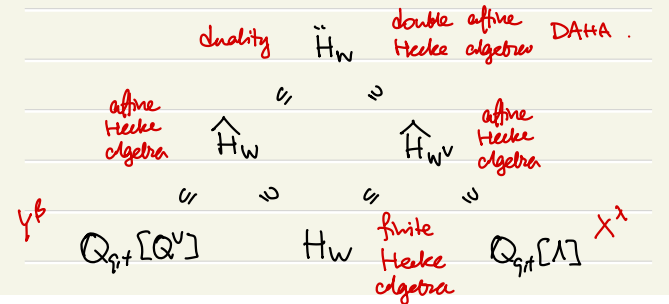 duality Ḧ_W double affine Hecke algebras DAHA.
⊆ ⊇
affine Hecke algebra Ĥ_W Ĥ_{W^∨} affine Hecke algebra
⊆ ⊇ ⊆ ⊇
Y^β Q_{q,t}[Q^∨] H_W finite Hecke algebra Q_{q,t}[Λ] X^λ